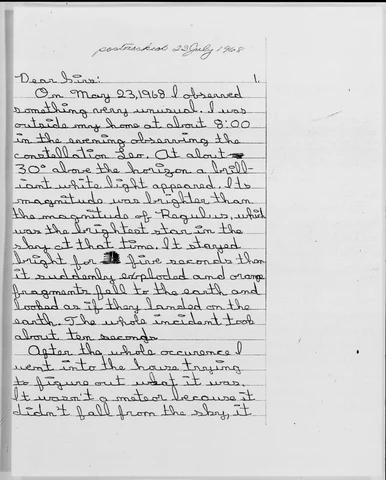 postmarked 22 July 1968
Dear Sirs: 1.
On May 23, 1968 I observed
something very unusual. I was
outside my home at about 8:00
in the evening observing the
constellation Leo. At about
30° above the horizon a brill-
iant white light appeared. Its
magnitude was brighter than
the magnitude of Regulus, which
was the brightest star in the
sky at that time. It stayed
bright for five seconds then
it suddenly exploded and orange
fragments fell to the earth and
looked as if they landed on the
earth. The whole incident took
about ten seconds
After the whole occurence I
went into the house trying
to figure out what it was.
It wasn't a meteor because it
didn't fall from the sky, it